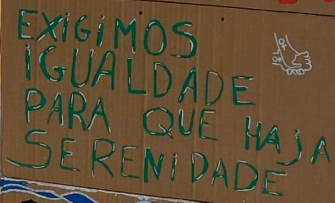 EXIGIMOS
IGUALDADE
PARA QUE HAJA
SERENIDADE